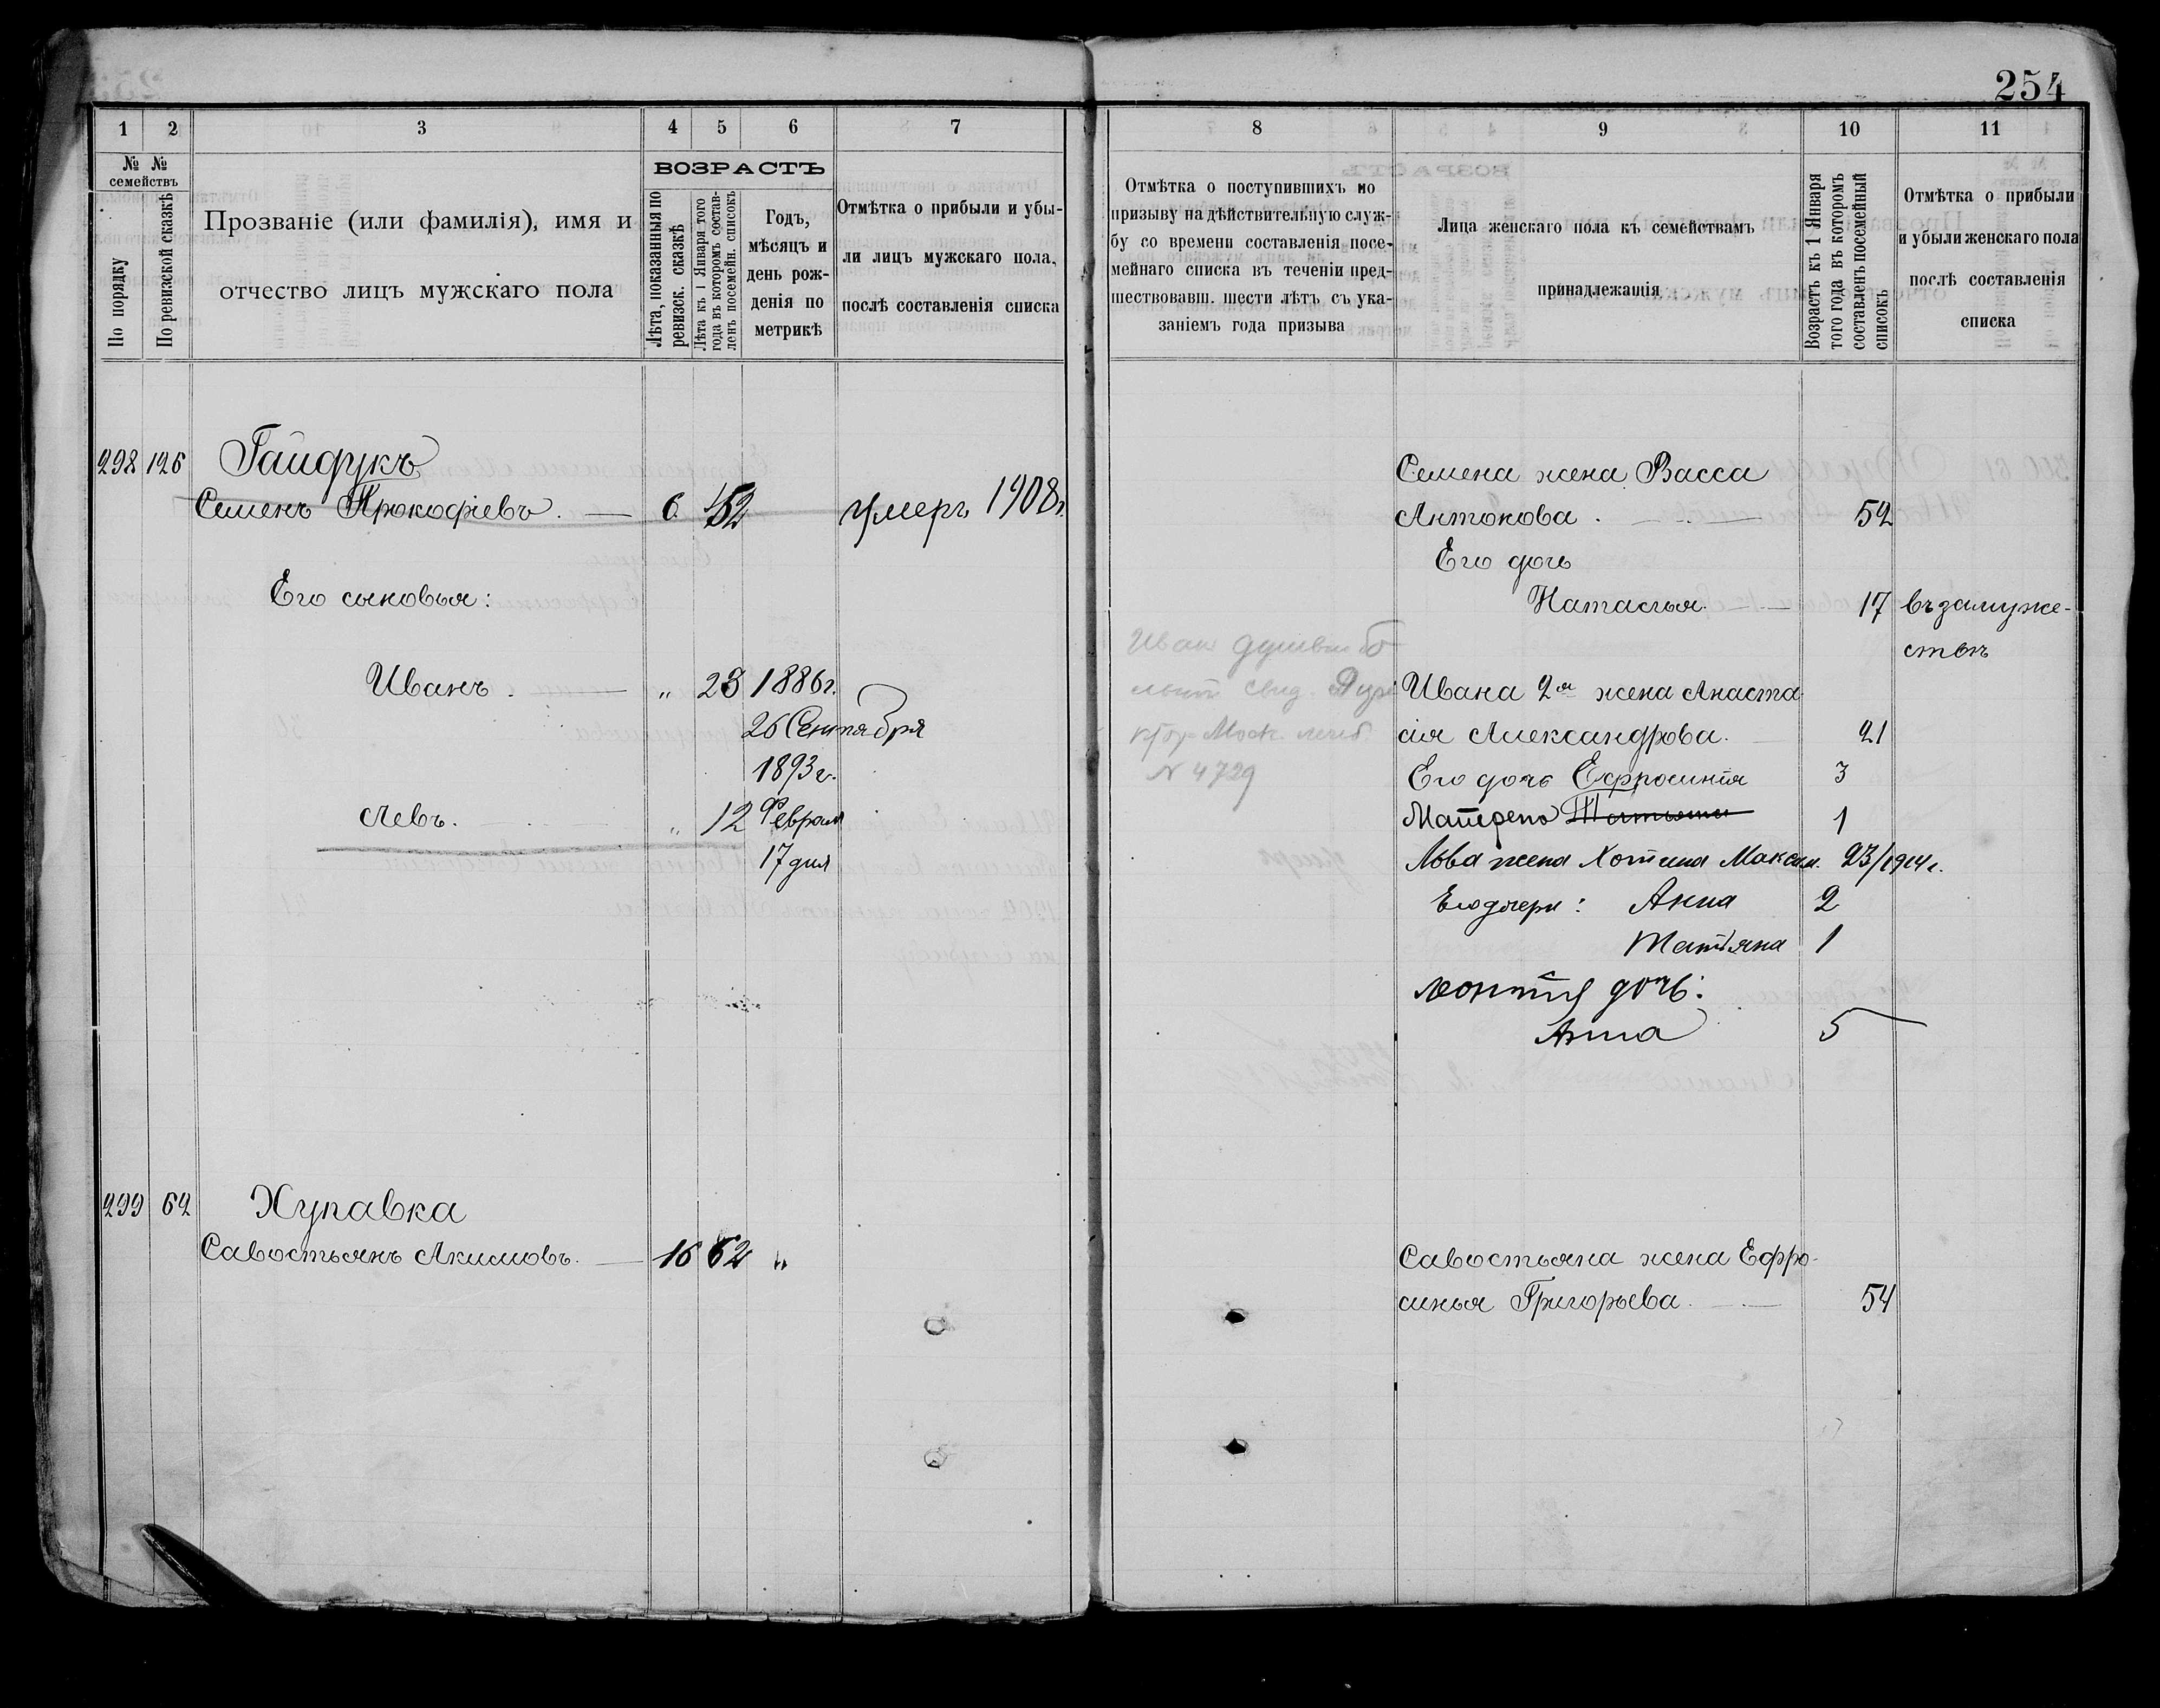 254
1 2 3 4 5 6 7
№ № семействъ
По порядку
По ревизской сказкѣ
Прозваніе (или фамилія), имя и
отчество лицъ мужскаго пола
ВОЗРАСТЪ
Лѣта, показанныя по
ревизск. сказкѣ
Лѣта къ 1 Января того
года въ которомъ состав-
ленъ посемейн. списокъ
Годъ,
мѣсяцъ и
день рож-
денія по
метрикѣ
Отмѣтка о прибыли и убы-
ли лицъ мужскаго пола,
послѣ составленія списка
298 126 Гайдукъ
Семенъ Прокофіевъ. — 6 52 умеръ 1908г.
Его сыновья:
Иванъ. — „ 23 1886г.
26 Сентября
1893г.
Левъ. — „ 12 Февраля
17 дня
299 62 Хупавка
Савостьянъ Акимовъ. — 16 62 „
8 9 10 11
Отмѣтка о поступившихъ по
призыву на дѣйствительную служ-
бу со времени составленія посе-
мейнаго списка въ теченіи пред-
шествовавш. шести лѣтъ съ ука-
заніемъ года призыва
Лица женскаго пола къ семействамъ
принадлежащія
Возрастъ къ 1 Января
того года въ которомъ
составленъ посемейный
списокъ
Отмѣтка о прибыли
и убыли женскаго пола
послѣ составленія
списка
Семена жена Васса
Антонова. — 52
Его дочь
Наталья. — 17 въ замуже-
ствѣ
Иван
Ивана 2я жена Анаста-
сія Александрова. 21
Его дочь Ефросинія 3
Матрена Татьяна 1
N 4729
Льва жена Хотина Максим. 23/1914г.
Его дочери: Анна 2
Татьяна 1
Леонтія дочь:
Анна 5
Савостьяна жена Ефро-
синья Григорьева. — 54